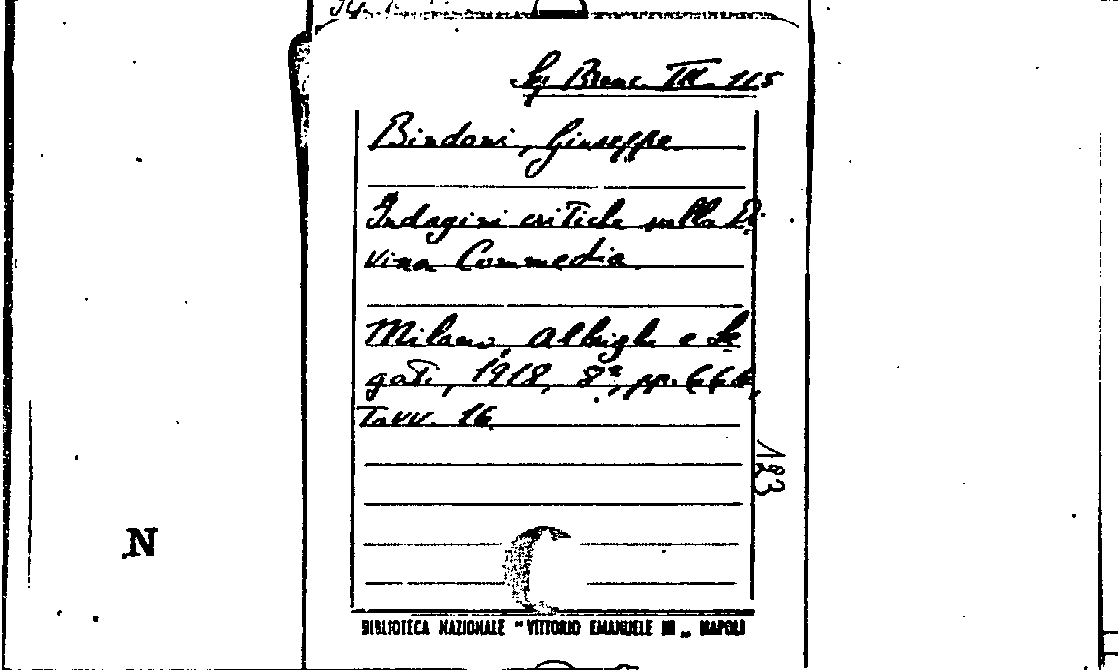 Branc. III. 115
Bindoni, Giuseppe
Indagini critiche sulla Di
vina Commedia
Milano, Albrighi e Se
gati, 1918, 8°, pp. 664,
Tavv. 16
123
N
BIBLIOTECA NAZIONALE "VITTORIO EMANUELE III" NAPOLI